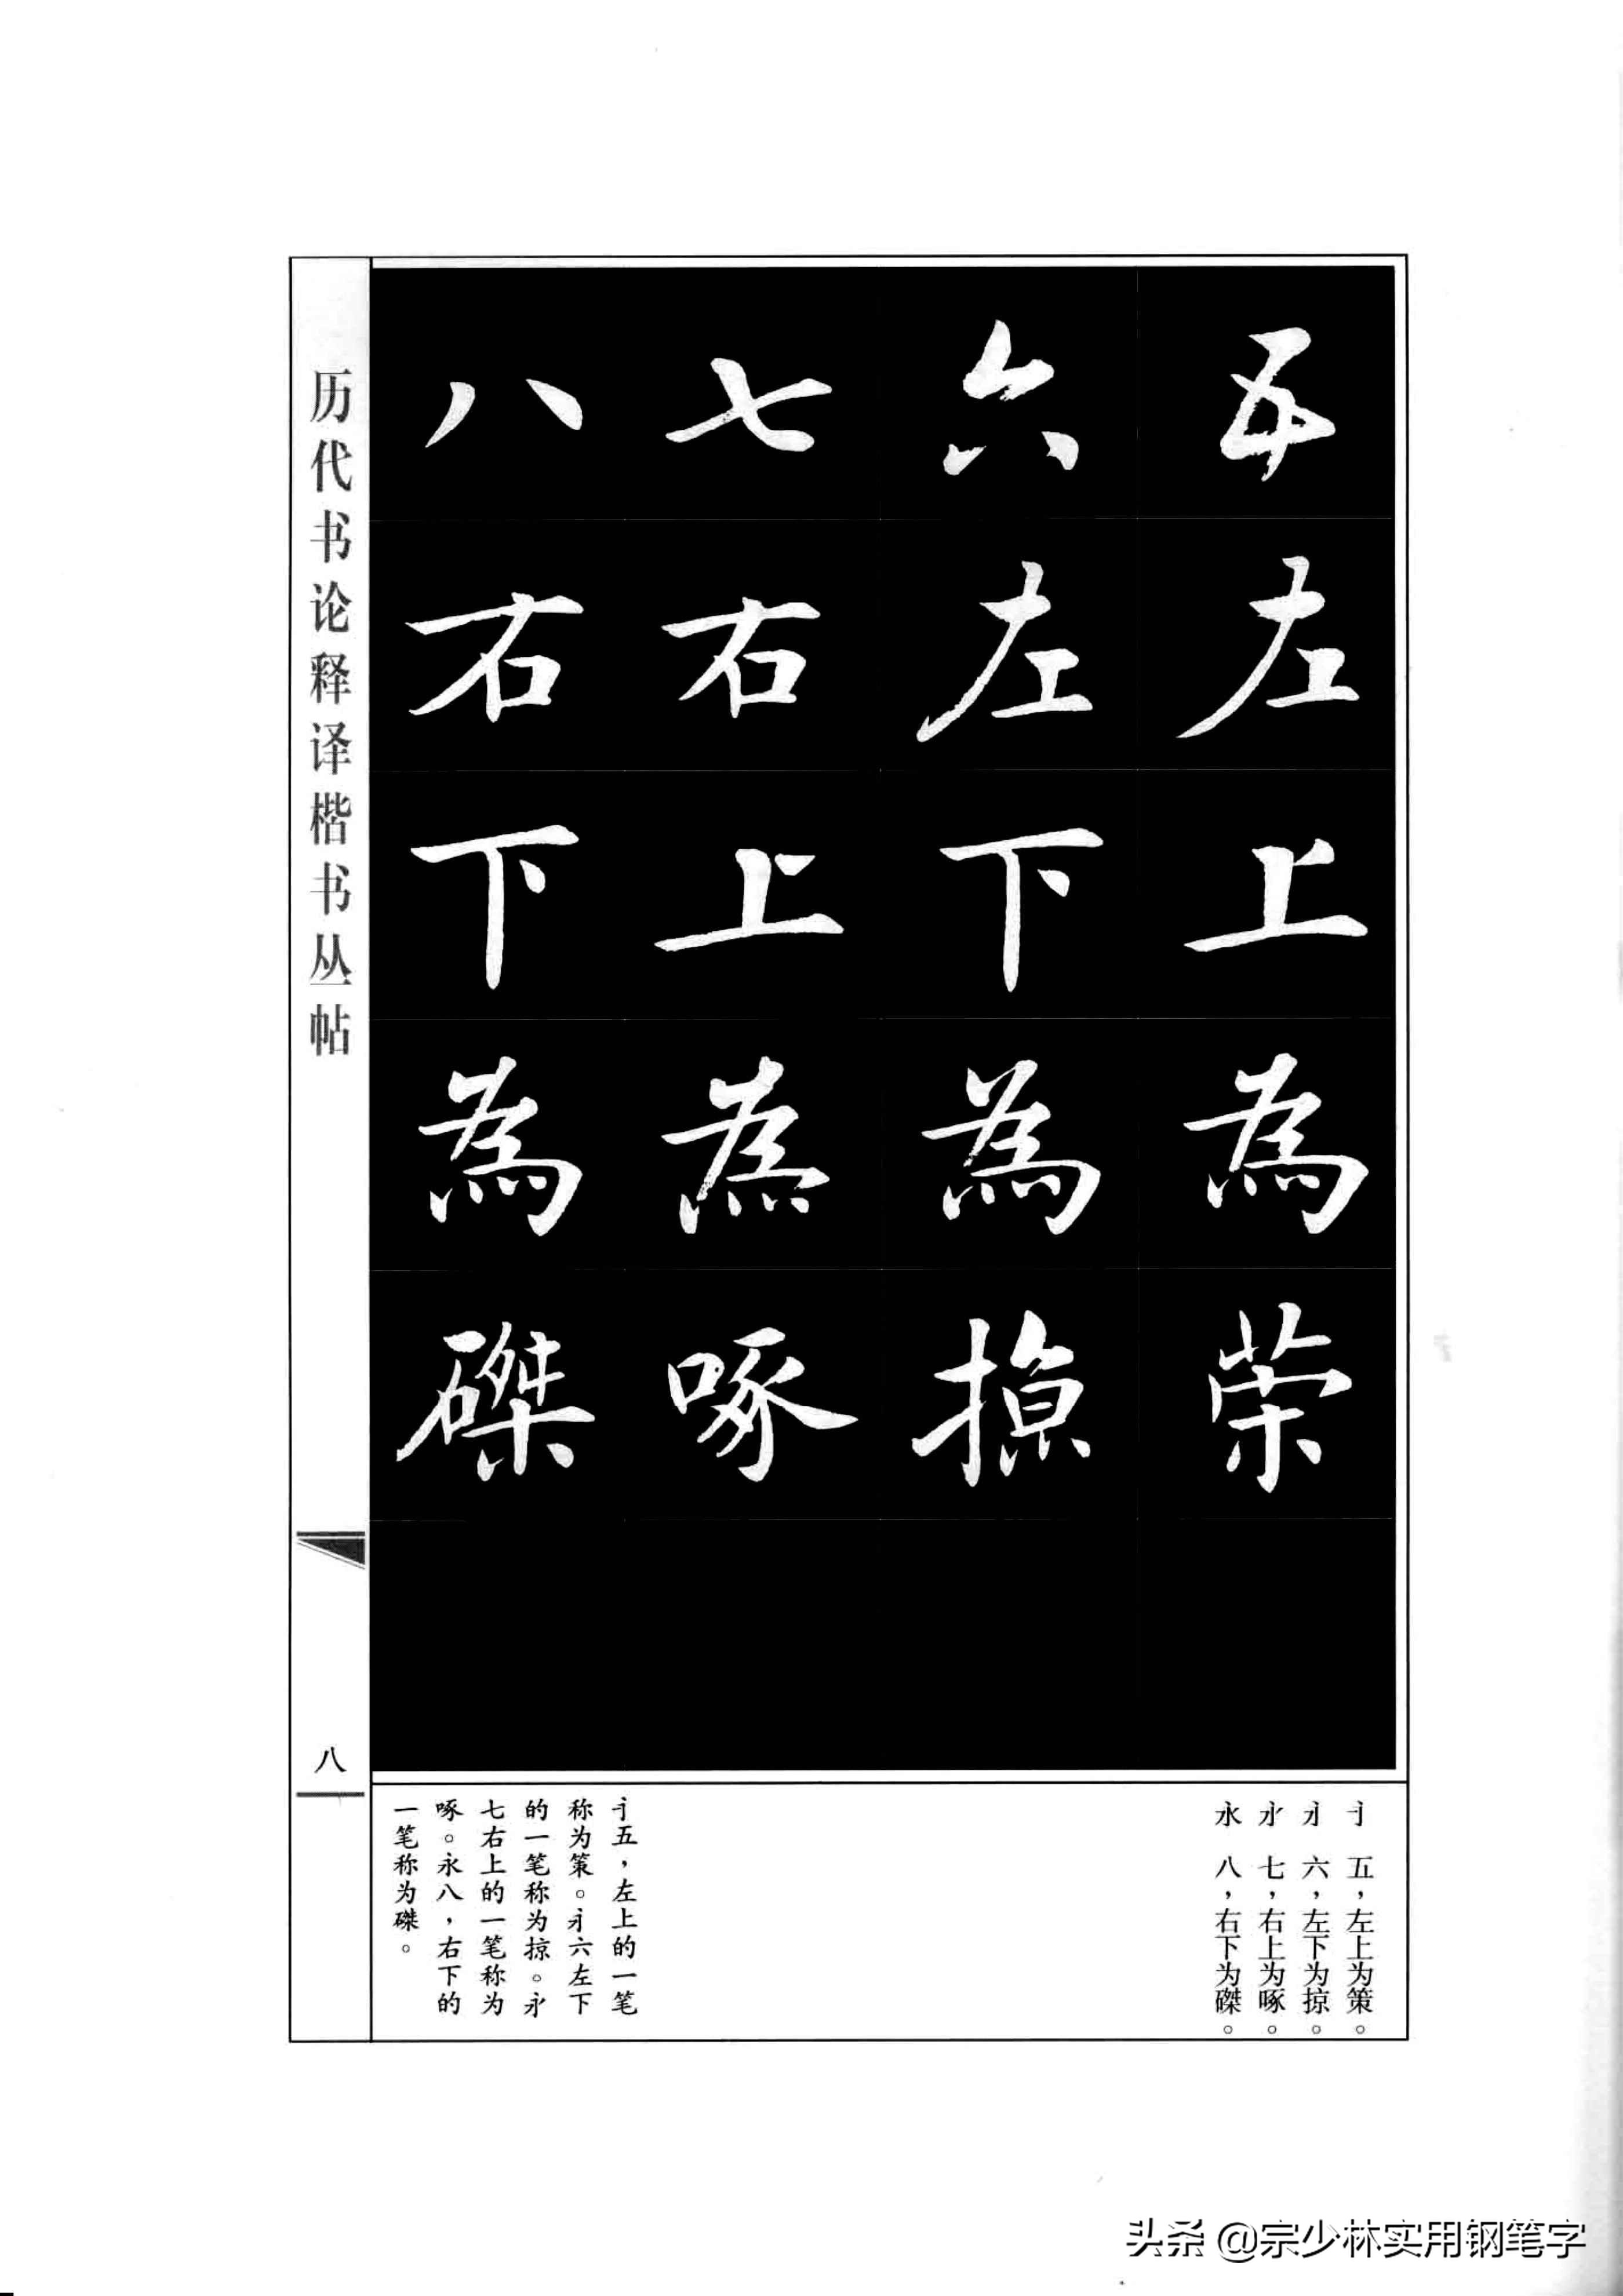 五左上為策
六左下為掠
七右上為啄
八右下為磔
五，左上为策。
六，左下为掠。
七，右上为啄。
永 八，右下为磔。
五，左上的一笔
称为策。六左下
的一笔称为掠。
七右上的一笔称为
啄。永八，右下的
一笔称为磔。
历代书论释译楷书丛帖
八
头条 @宗少林实用钢笔字